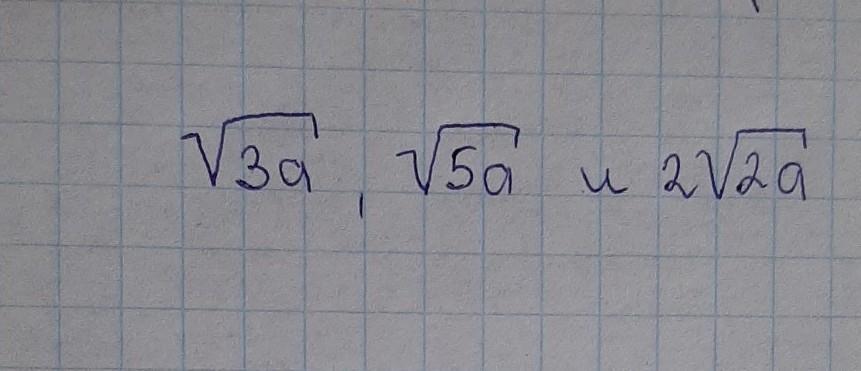 √3a, √5a и 2√2a